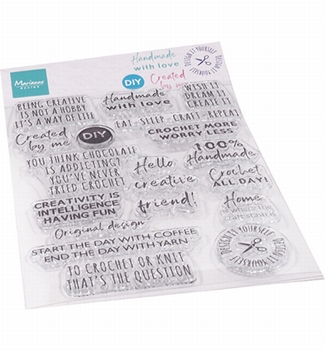 Marianne
DESIGN
Handmade
with love
DIY
Created
by me
DESIGN IT YOURSELF
BEING CREATIVE
IS NOT A HOBBY
IT'S A WAY OF LIFE
Handmade
with love
WISH IT
DREAM IT
CREATE IT
Created
by me
DIY
EAT - SLEEP - CRAFT - REPEAT
CROCHET MORE
WORRY LESS
YOU THINK CHOCOLATE
IS ADDICTING?
YOU'VE NEVER
TRIED CROCHET
Hello
100%
Handmade
creative
Crochet
ALL DAY!
CREATIVITY IS
INTELLIGENCE
HAVING FUN
friend!
Home
Original design
START THE DAY WITH COFFEE
END THE DAY WITH YARN
DESIGN IT YOURSELF
TO CROCHET OR KNIT
THAT'S THE QUESTION